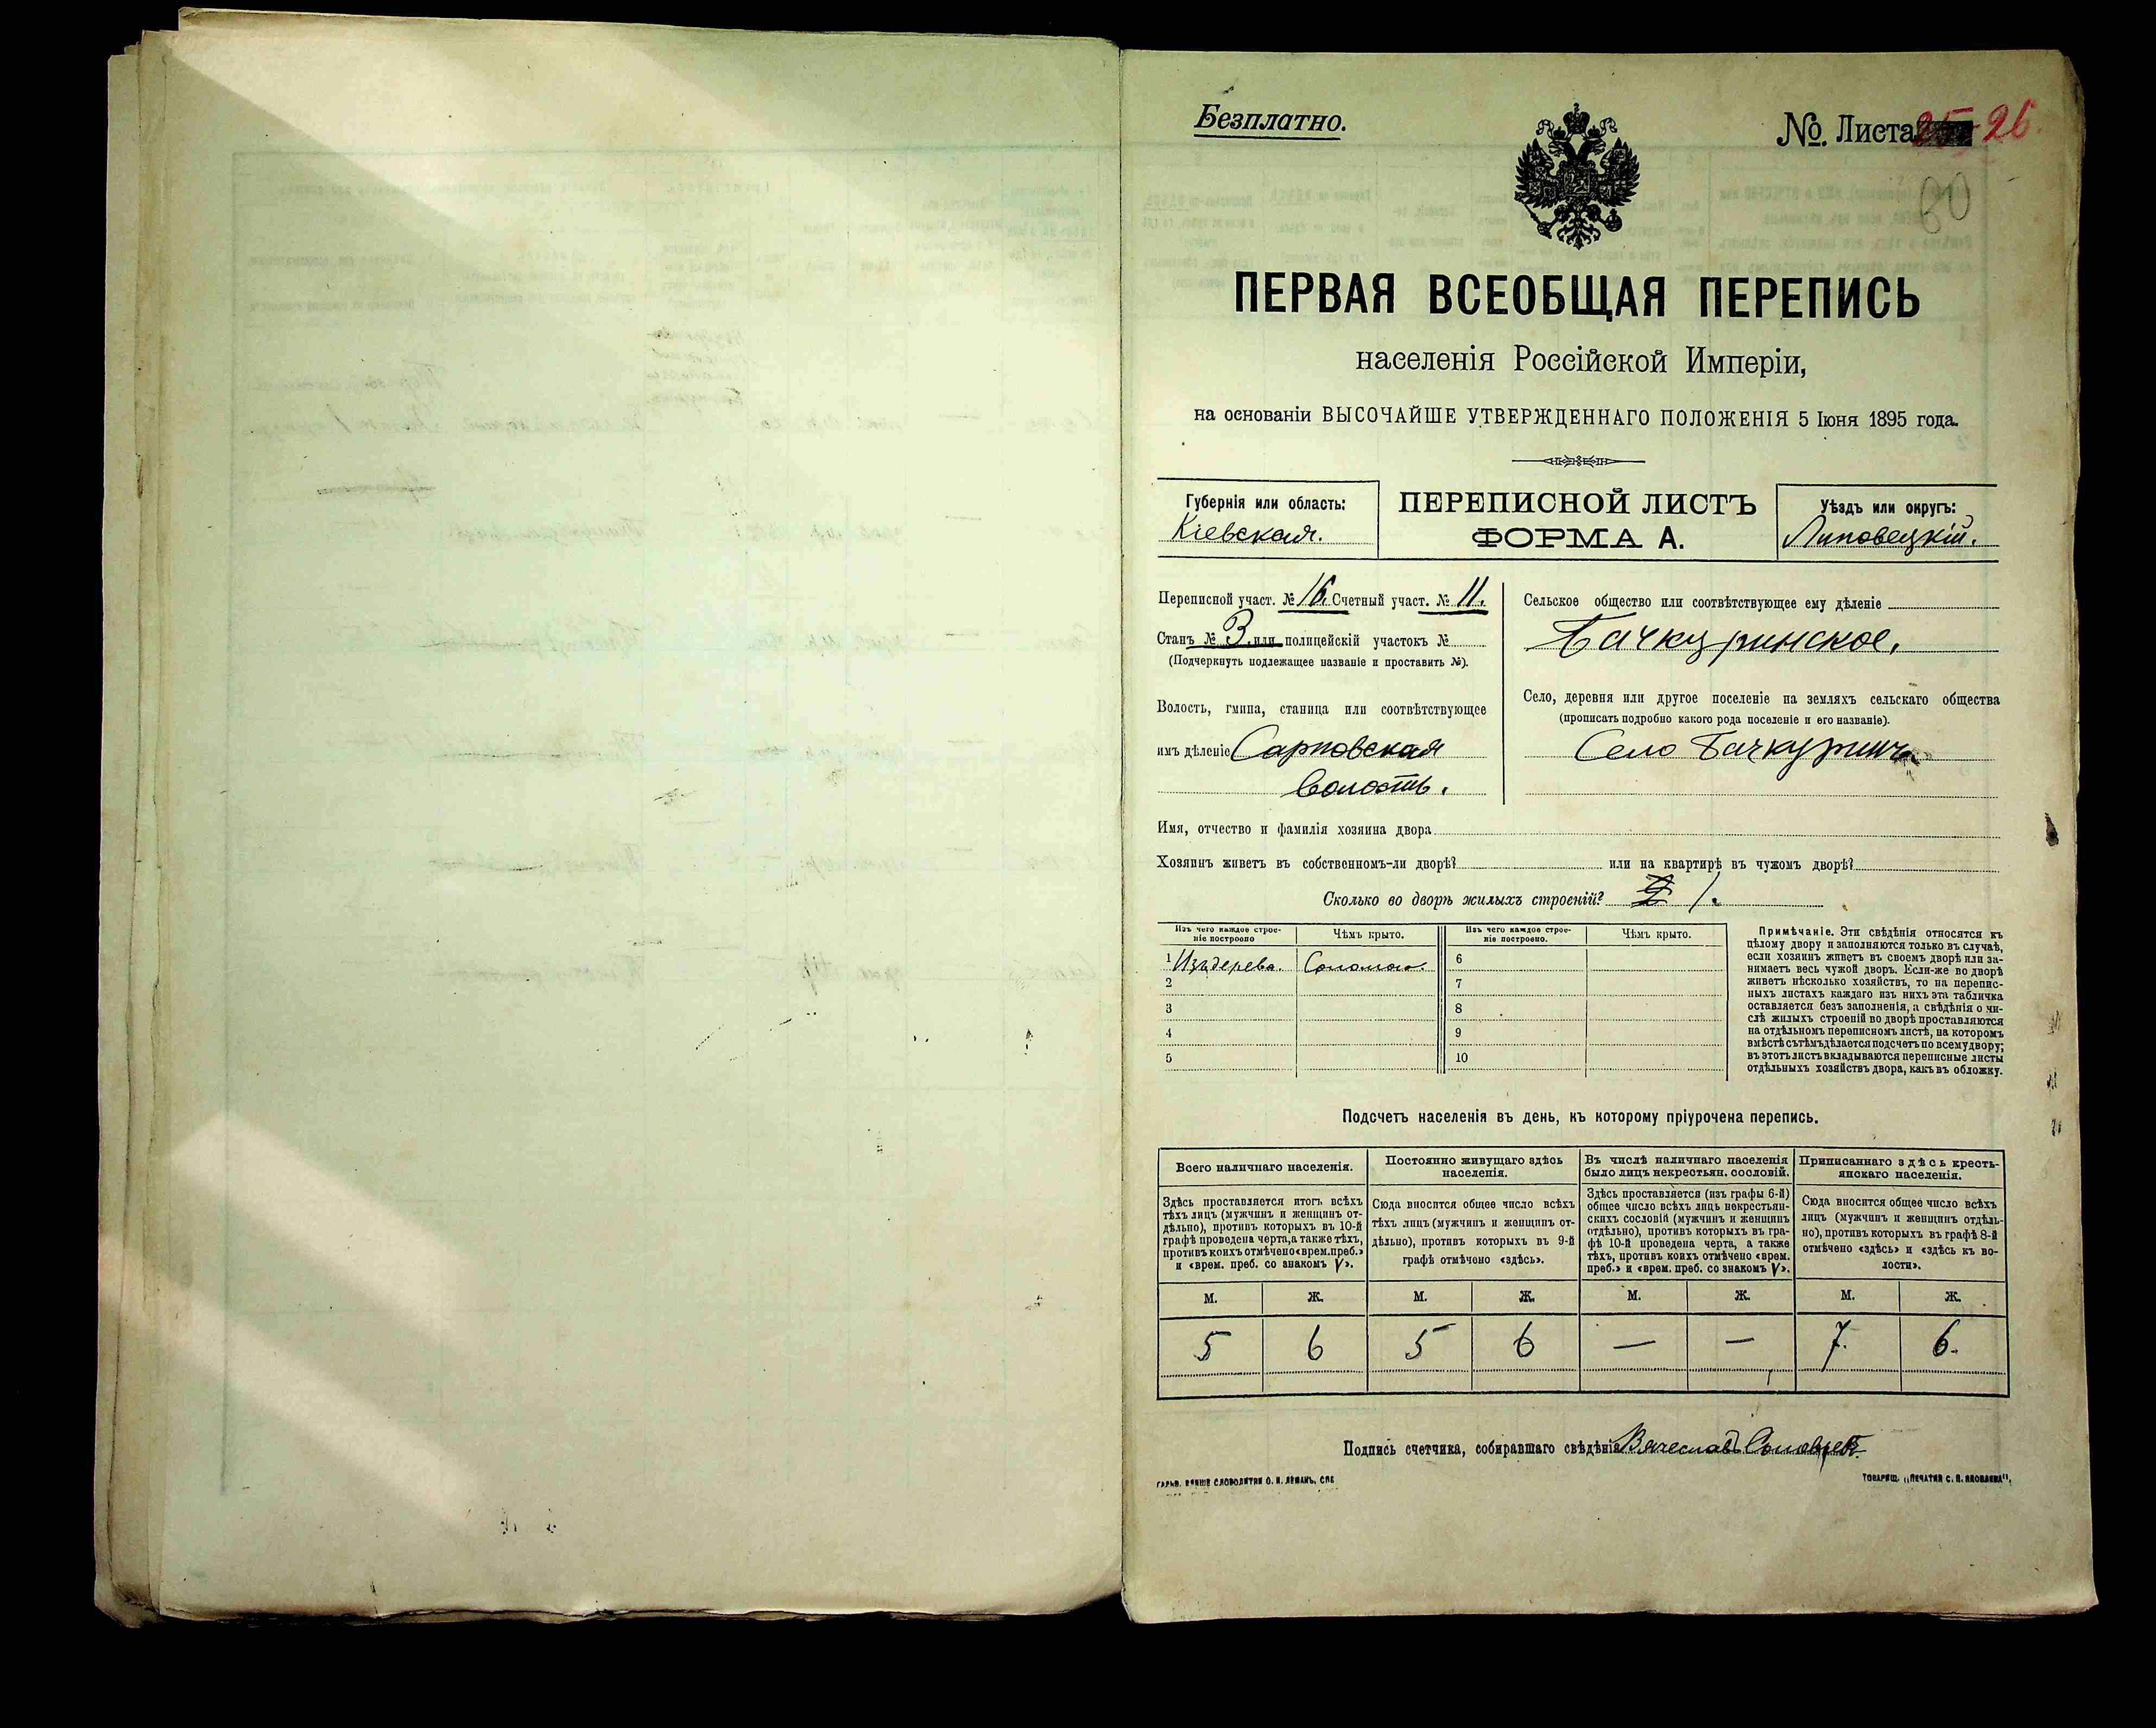 Безплатно.
№. Листа 25-26.
60
ПЕРВАЯ ВСЕОБЩАЯ ПЕРЕПИСЬ
населенія Россійской Имперіи,
на основаніи ВЫСОЧАЙШЕ УТВЕРЖДЕННАГО ПОЛОЖЕНІЯ 5 Іюня 1895 года.
Губернія или область:
Кіевская.
ПЕРЕПИСНОЙ ЛИСТЪ
ФОРМА А.
Уѣздъ или округъ:
Липовецкій.
Переписной участ. № 16. Счетный участ. № 11.
Станъ № 3. или полицейскій участокъ №
(Подчеркнуть подлежащее названіе и проставить №).
Волость, гмина, станица или соотвѣтствующее
имъ дѣленіе Сарновская
волость.
Сельское общество или соотвѣтствующее ему дѣленіе
Бачкуринское.
Село, деревня или другое поселеніе на земляхъ сельскаго общества
(прописать подробно какого рода поселеніе и его названіе).
Село Бачкурин
Имя, отчество и фамилія хозяина двора
Хозяинъ живетъ въ собственномъ-ли дворѣ? или на квартирѣ въ чужомъ дворѣ?
Сколько во дворѣ жилыхъ строеній? 1.
Изъ чего каждое строе-
ніе построено
Чѣмъ крыто.
Изъ чего каждое строе-
ніе построено.
Чѣмъ крыто.
1 Изъ дерева. Соломою. 6
2 7
3 8
4 9
5 10
Примѣчаніе. Эти свѣдѣнія относятся къ
цѣлому двору и заполняются только въ случаѣ,
если хозяинъ живетъ въ своемъ дворѣ или за-
нимаетъ весь чужой дворъ. Если-же во дворѣ
живетъ нѣсколько хозяйствъ, то на перепис-
ныхъ листахъ каждаго изъ нихъ эта табличка
оставляется безъ заполненія, а свѣдѣнія о чи-
слѣ жилыхъ строеній во дворѣ проставляются
на отдѣльномъ переписномъ листѣ, на которомъ
вмѣстѣ съ тѣмъ дѣлается подсчетъ по всему двору;
въ этотъ листъ вкладываются переписные листы
отдѣльныхъ хозяйствъ двора, какъ въ обложку.
Подсчетъ населенія въ день, къ которому пріурочена перепись.
Всего наличнаго населенія.
Здѣсь проставляется итогъ всѣхъ
тѣхъ лицъ (мужчинъ и женщинъ от-
дѣльно), противъ которыхъ въ 10-й
графѣ проведена черта, а также тѣхъ,
противъ коихъ отмѣчено «врем. преб.»
и «врем. преб. со знакомъ V».
Постоянно живущаго здѣсь
населенія.
Сюда вносится общее число всѣхъ
тѣхъ лицъ (мужчинъ и женщинъ от-
дѣльно), противъ которыхъ въ 9-й
графѣ отмѣчено «здѣсь».
Въ числѣ наличнаго населенія
было лицъ некрестьян. сословій.
Здѣсь проставляется (изъ графы 6-й)
общее число всѣхъ лицъ некрестьян-
скихъ сословій (мужчинъ и женщинъ
отдѣльно), противъ которыхъ въ гра-
фѣ 10-й проведена черта, а также
тѣхъ, противъ коихъ отмѣчено «врем.
преб.» и «врем. преб. со знакомъ V».
Приписаннаго здѣсь кресть-
янскаго населенія.
Сюда вносится общее число всѣхъ
лицъ (мужчинъ и женщинъ отдѣль-
но), противъ которыхъ въ графѣ 8-й
отмѣчено «здѣсь» и «здѣсь къ во-
лости».
М. Ж. М. Ж. М. Ж. М. Ж.
5 6 5 6 — — 7. 6.
Подпись счетчика, собиравшаго свѣдѣнія Вячеславъ
ТОВАРИЩ. „ПЕЧАТНЯ С. П. ЯКОВЛЕВА".